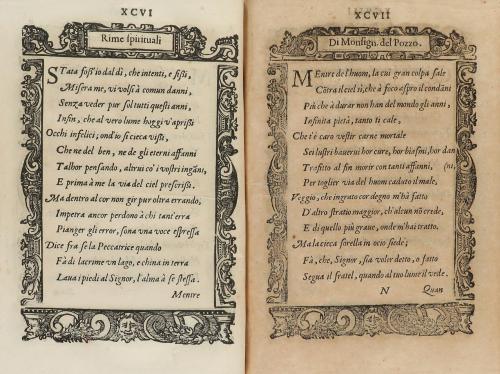 XCVI
Rime spirituali
STata foss'io dal dì, che intenti, e fissi,
Misera me, vi volsi à comun danni,
Senza veder pur sol tutti questi anni,
Infin, che al vero lume hoggi v'aprissi
Occhi infelici, ond'io sì cieca vissi,
Che ne del ben, ne de gli eterni affanni
Talhor pensando, altrui co' i vostri ingãni,
E prima à me la via del ciel prescrissi.
Ma dentro al cor non gir pur oltra errando,
Impetra ancor perdono à chi tant'erra
Pianger gli error, sona vna voce espressa
Dice fra se la Peccatrice quando
Fà di lacrime vn lago, e china in terra
Laua i piedi al Signor, l'alma à se stessa.
Mentre
XCVII
Di Monsign. del Pozzo.
MEntre de l'huom, la cui gran colpa sale
Cõtra il ciel sì, che à foco aspro il condãni
Più che à durar non han del mondo gli anni,
Infinita pietà, tanto ti cale,
Che t'è caro vestir carne mortale
Sei lustri hauersi hor cure, hor biasmi, hor dan
Trafitto al fin morir con tanti affanni, (ni,
Per toglier via del huom caduto il male,
Veggio, che ingrato cor degno m'hà fatto
D'altro stratio maggior, ch'alcun nõ crede,
E di quello più graue, ond'm'hai tratto.
Ma la cieca sorella in ocio siede;
Fà, che, Signor, sia voler detto, o fatto
Segua il fratel, quando al tuo lume il vede.
N Quan